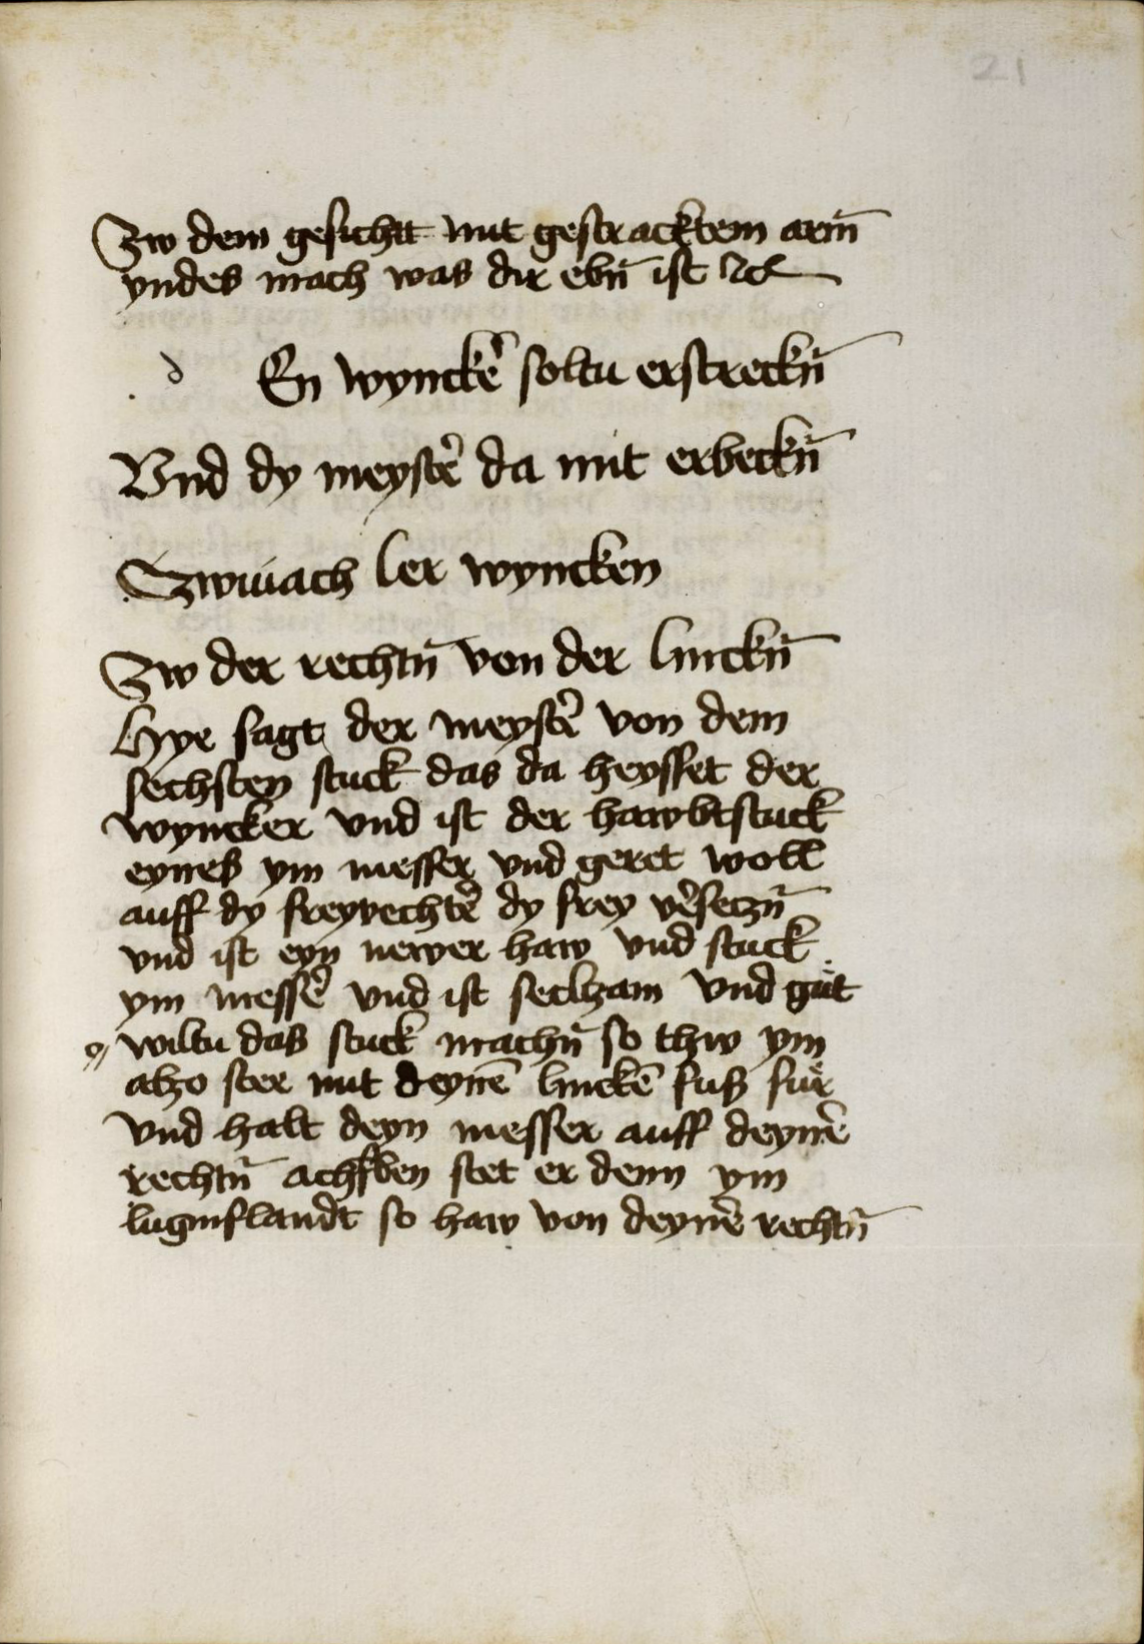 21
Zw dem gesichtt mit gestracktem arm̄
yndes mach was dir ebn̄ ist ⁊cꝛ
d En wynckē soltu erstreckn̄
Vnd dy meystē da mit erbeckn̄
Zwiuach ler wyncken
Zw der rechtn̄ von der linckn̄
Hye sagt der meystē von dem
sechsten stuck das da heysset der
wyncker vnd ist der hawbtstuck
eynes ym messer vnd geret woll
auff dy freyvechtē dy frey vēseczn̄
vnd ist eyn newer haw vnd stuck
ym messē vnd ist seltzam vnd gůt
wiltu das stuck machn̄ so thw ym
alzo stee mit deynē linckē fuß fůr
vnd halt deyn messer auff deynē
rechtn̄ achslen stet er denn ym
luginslandt so haw von deynē rechtn̄